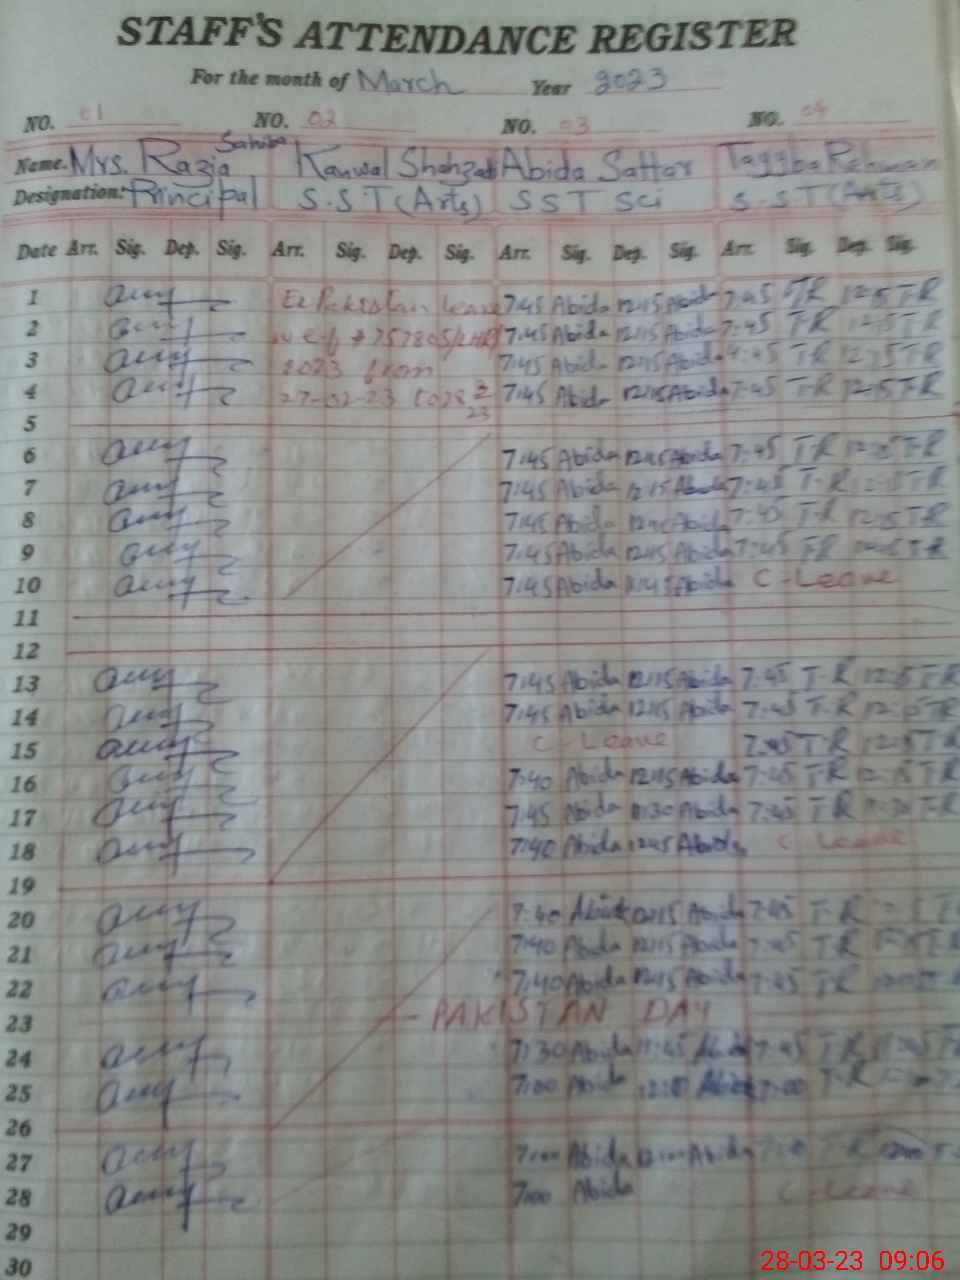 STAFF'S ATTENDANCE REGISTER
For the month of March Year 2023
NO. 01 NO. 02 NO. 03 NO. 04
Name. Mrs. Razia Sahiba Kanwal Shahzadi Abida Sattar Tayyba Rehman
Designation: Principal S.S.T (Arts) SST Sci S.ST (Arts)
Date Arr. Sig. Dep. Sig. Arr. Sig. Dep. Sig. Arr. Sig. Dep. Sig. Arr Sig. Dep. Sig.
1 Ex Pakistan Leave 7:45 Abida 12:15 Abida 7:45 T-R 12:15 T-R
2 7:45 Abida 12:15 Abida 7:45 T-R 12:15 T-R
3 2023 from 7:45 Abida 12:15 Abida 7:45 T-R 12:15 T-R
4 27-02-23 to 7:45 Abida 12:15 Abida 7:45 T-R 12:15 T-R
5
6 7:45 Abida 12:15 Abida 7:45 T-R 12:15 T-R
7 7:45 Abida 12:15 Abida 7:45 T-R 12:15 T-R
8 7:45 Abida Abida 7:45 T-R 12:15 T-R
9 7:45 Abida 12:15 Abida 7:45 T-R 12:15 T-R
10 7:45 Abida Abida C-Leave
11
12
13 7:45 Abida 12:15 Abida 7:45 T-R 12:15 T-R
14 7:45 Abida 12:15 Abida 7:45 T-R 12:15 T-R
15 C-Leave 7:45 T-R 12:15 T-R
16 7:40 Abida 12:15 Abida 7:45 T-R 12:15 T-R
17 7:45 Abida 11:30 Abida 7:45 T-R 11:30 T-R
18 7:40 Abida Abida C-Leave
19
20 7:40 Abida 12:15 Abida 7:45 T-R
21 7:40 Abida 12:15 Abida 7:45 T-R
22 7:40 Abida 12:15 Abida 7:45 T-R
23 PAKISTAN DAY
24 7:30 Abida 11:45 Abida 7:45 T-R
25 7:00 Abida Abida 7:00 T-R
26
27 7:00 Abida 12:00 Abida T-R 12:00
28 7:00 Abida C-Leave
29
30
28-03-23 09:06